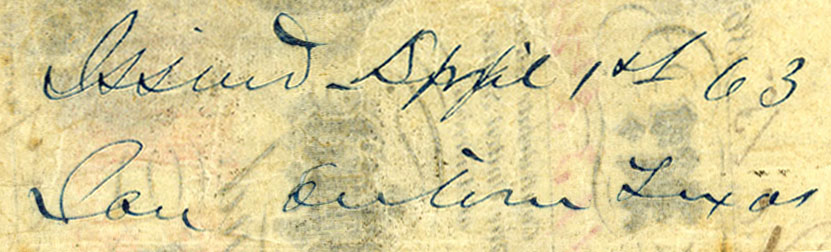 Issued April 1st 63
San Antonio Texas